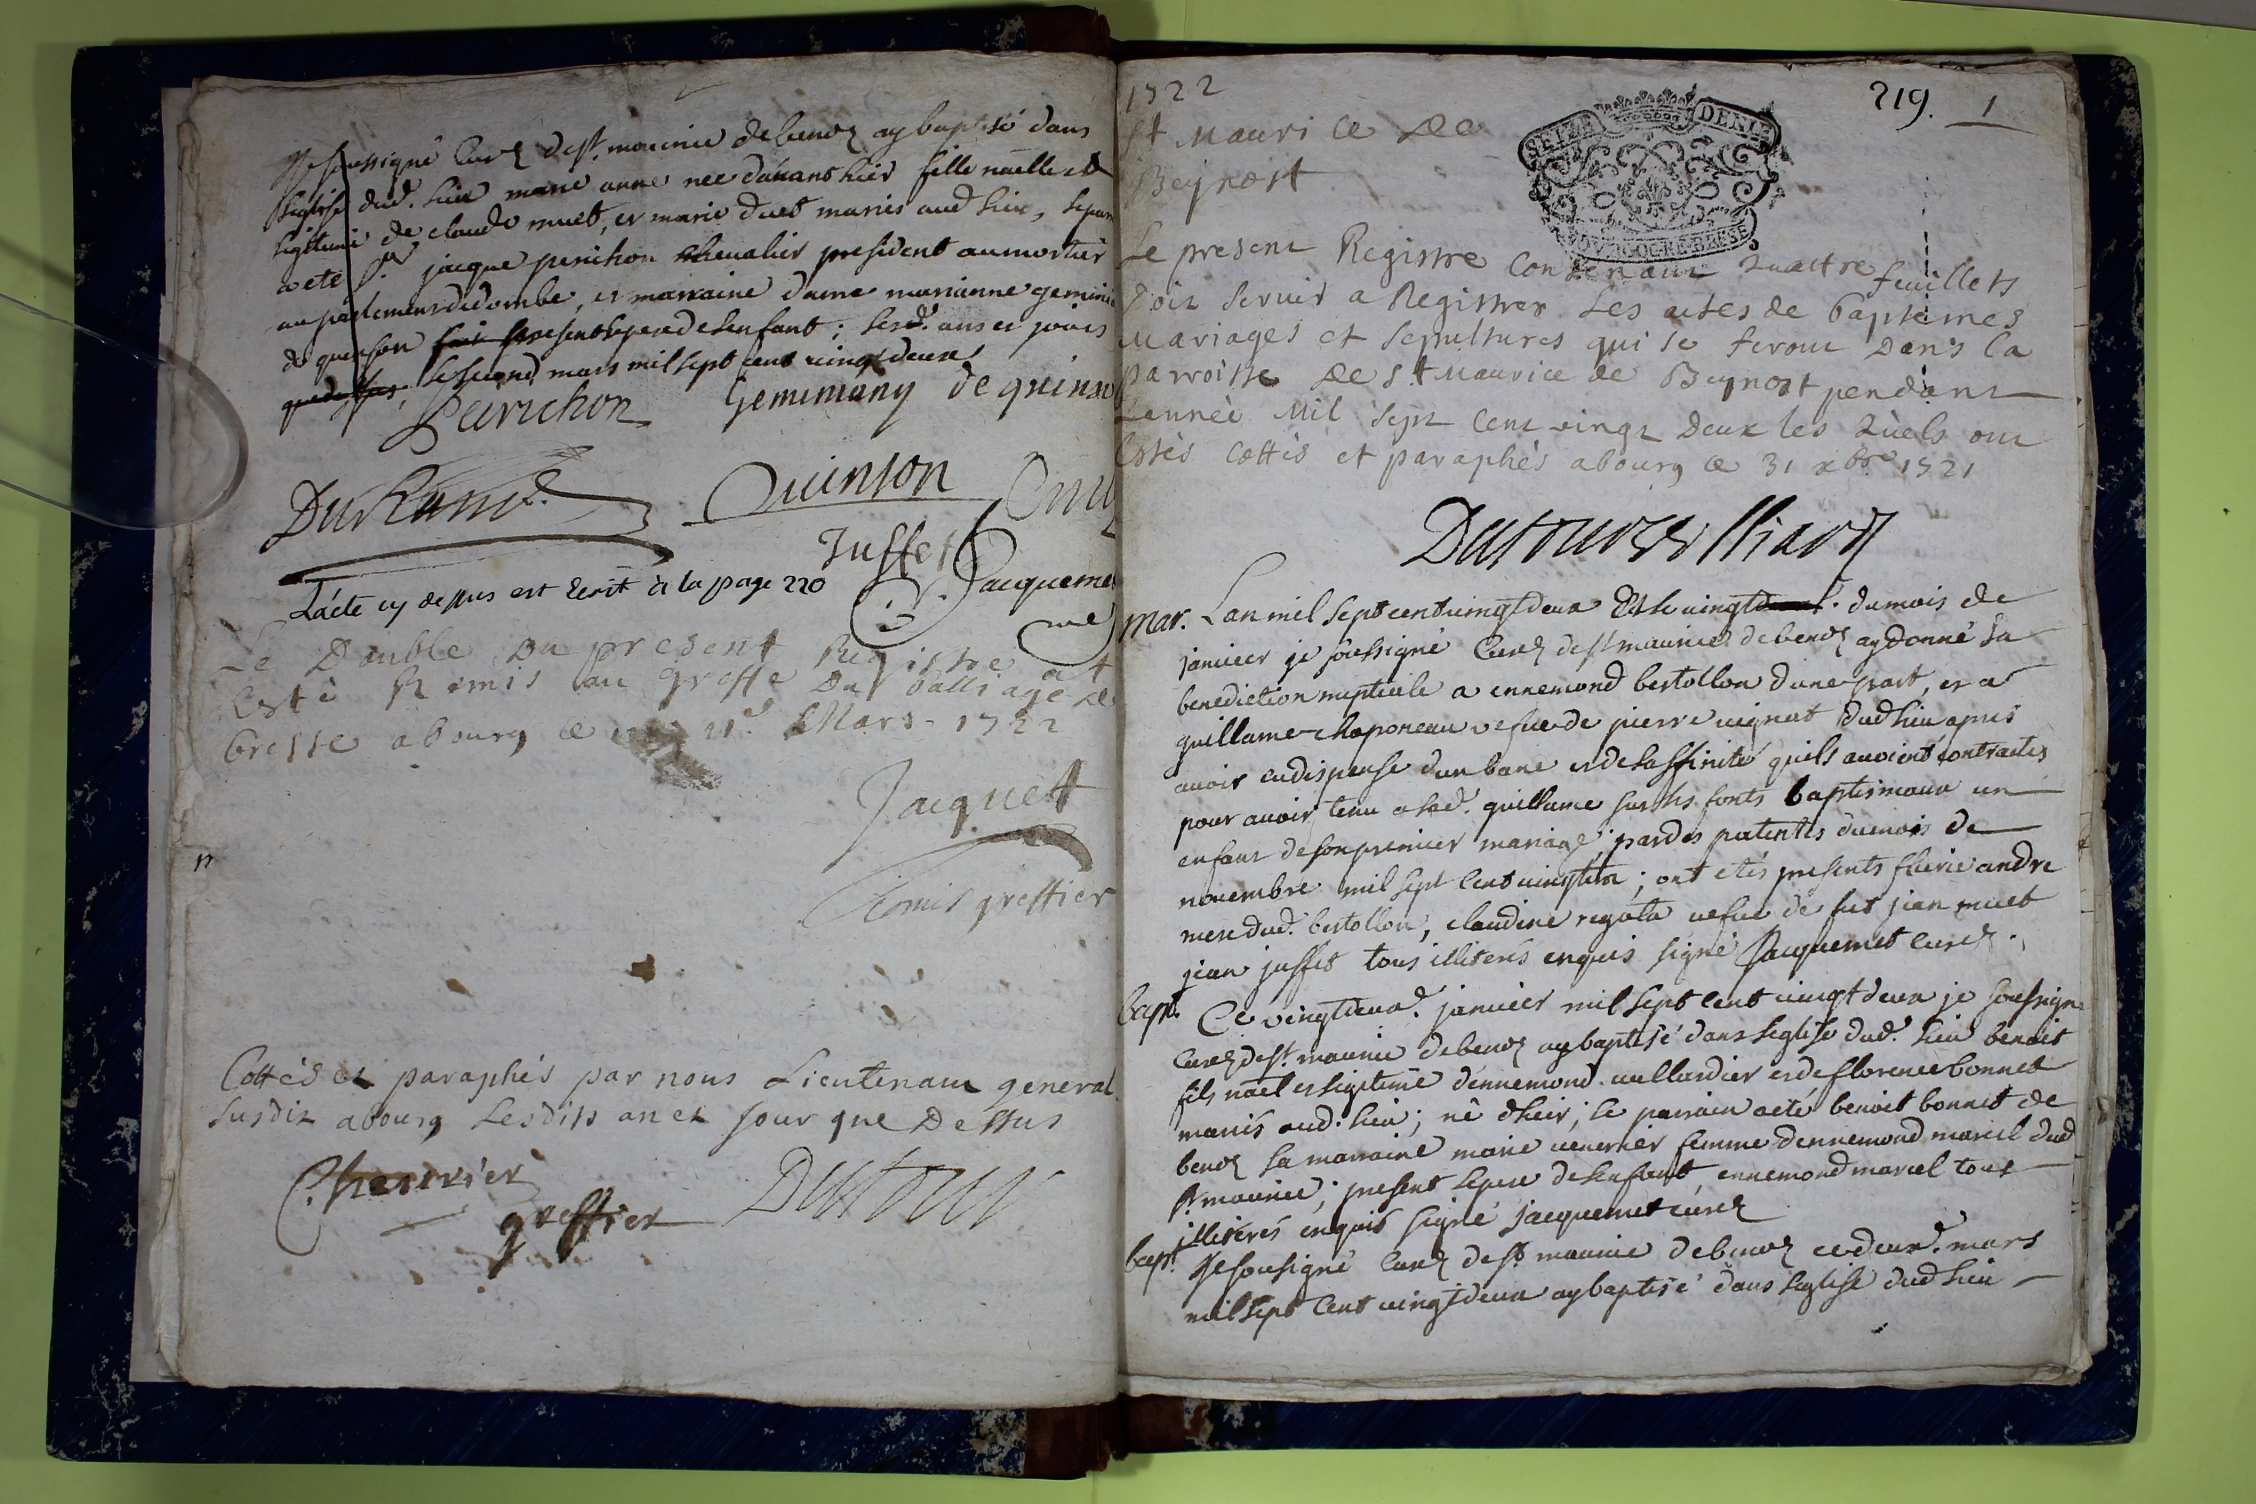 Je soussigné Curé de st. maurice de benoz ay baptisé dans
l'eglise dud. lieu marie anne née d'auant hier fille naëlle et
legitime de claude muet, et marie duet mariés aud lieu, le parr
a eté sr. jacque perichon chevalier president au mortier
au parlement de dombe, et marraine dame marianne gemini
de quinson present le pere de l'enfant ; lesd. ans et jours
que dessus, le second mars mil sept cent vingt deux
Perrichon Gemimany de quinso
Durand Quinson
Juffet
Jacqueme
L'acte cy dessus est ecrit à la page 220
Le Double Du present Registre a
Esté Remis au greffe Du Balliage de
bresse abourg ce 11e Mars 1722
Jacquet
Comis greffier
Cottés et paraphés par nous Lieutenant general
susdit abourg Lesdits an et Jour que Dessus
Chevrier
greffier Dutour
1722
219. 1
St Maurice de
Beynost
SEIZE DENIE
BOURGOGNE BRESSE
Le present Registre Contenant quattre feuillets
Doit servir a Registrer Les actes de baptêmes
Mariages et sepultures qui se feront Dans la
parroisse de St Maurice de Beynost pendant
Lannée Mil sept Cent vingt Deux les quels ont
Estés Cottés et paraphés abourg ce 31 xbre 1721
Dutour
mar. Lan mil sept cent vingt deux Et le vingt . du mois de
janvier je soussigné Curé de st maurice de benoz ay donné la
benediction nuptiale a ennemond bertollon d'une part, et a
guillame chaponeau vefue de pierre vignat dud lieu apres
auoir eu dispense d'un banc et de l'affinité quils auoient contractés
pour auoir tenu a lad. guillame sur les fonts baptismaux un
enfant de son premier mariage, par des patentes du mois de
novembre mil sept cent vingt un ; ont etés presents fleurie andre
mere dud. bertollon, claudine regota vefue de fut jean muet
jean juffet tous illiterés enquis signé Jacquemet Curé.
bapt. Ce vingt deux. janvier mil sept cent vingt deux je soussigné
Curé de st. maurice de benoz ay baptisé dans leglise dud. lieu benoit
fils naël et legitime d'ennemond uullardier et de florence bonnet
mariés aud. lieu ; né d'hier ; le parrain a eté benoit bonnet de
benoz la marraine marie uenerier femme d'ennemond marcel dud
st. maurice ; present le pere de l'enfant, ennemond marcel tous
illiterés enquis signé jacquemet curé
bapt. Je soussigné Curé de st. maurice de benoz ce deux. mars
mil sept cent vingt deux ay baptisé dans leglise dud lieu